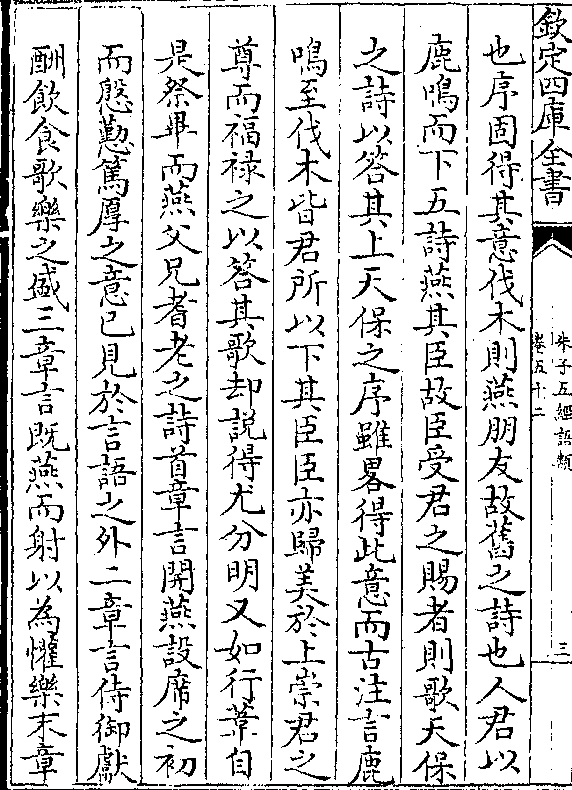 欽定四庫全書
朱子五經語類
卷五十二
三
也序固得其意伐木則燕朋友故舊之詩也人君以
鹿鳴而下五詩燕其臣故臣受君之賜者則歌天保
之詩以答其上天保之序雖畧得此意而古注言鹿
鳴至伐木皆君所以下其臣臣亦歸美於上崇君之
尊而福祿之以答其歌却説得尤分明又如行葦自
是祭畢而燕父兄耆老之詩首章言開燕設席之初
而慇懃篤厚之意已見於言語之外二章言侍御獻
酬飲食歌樂之盛三章言既燕而射以為懽樂末章